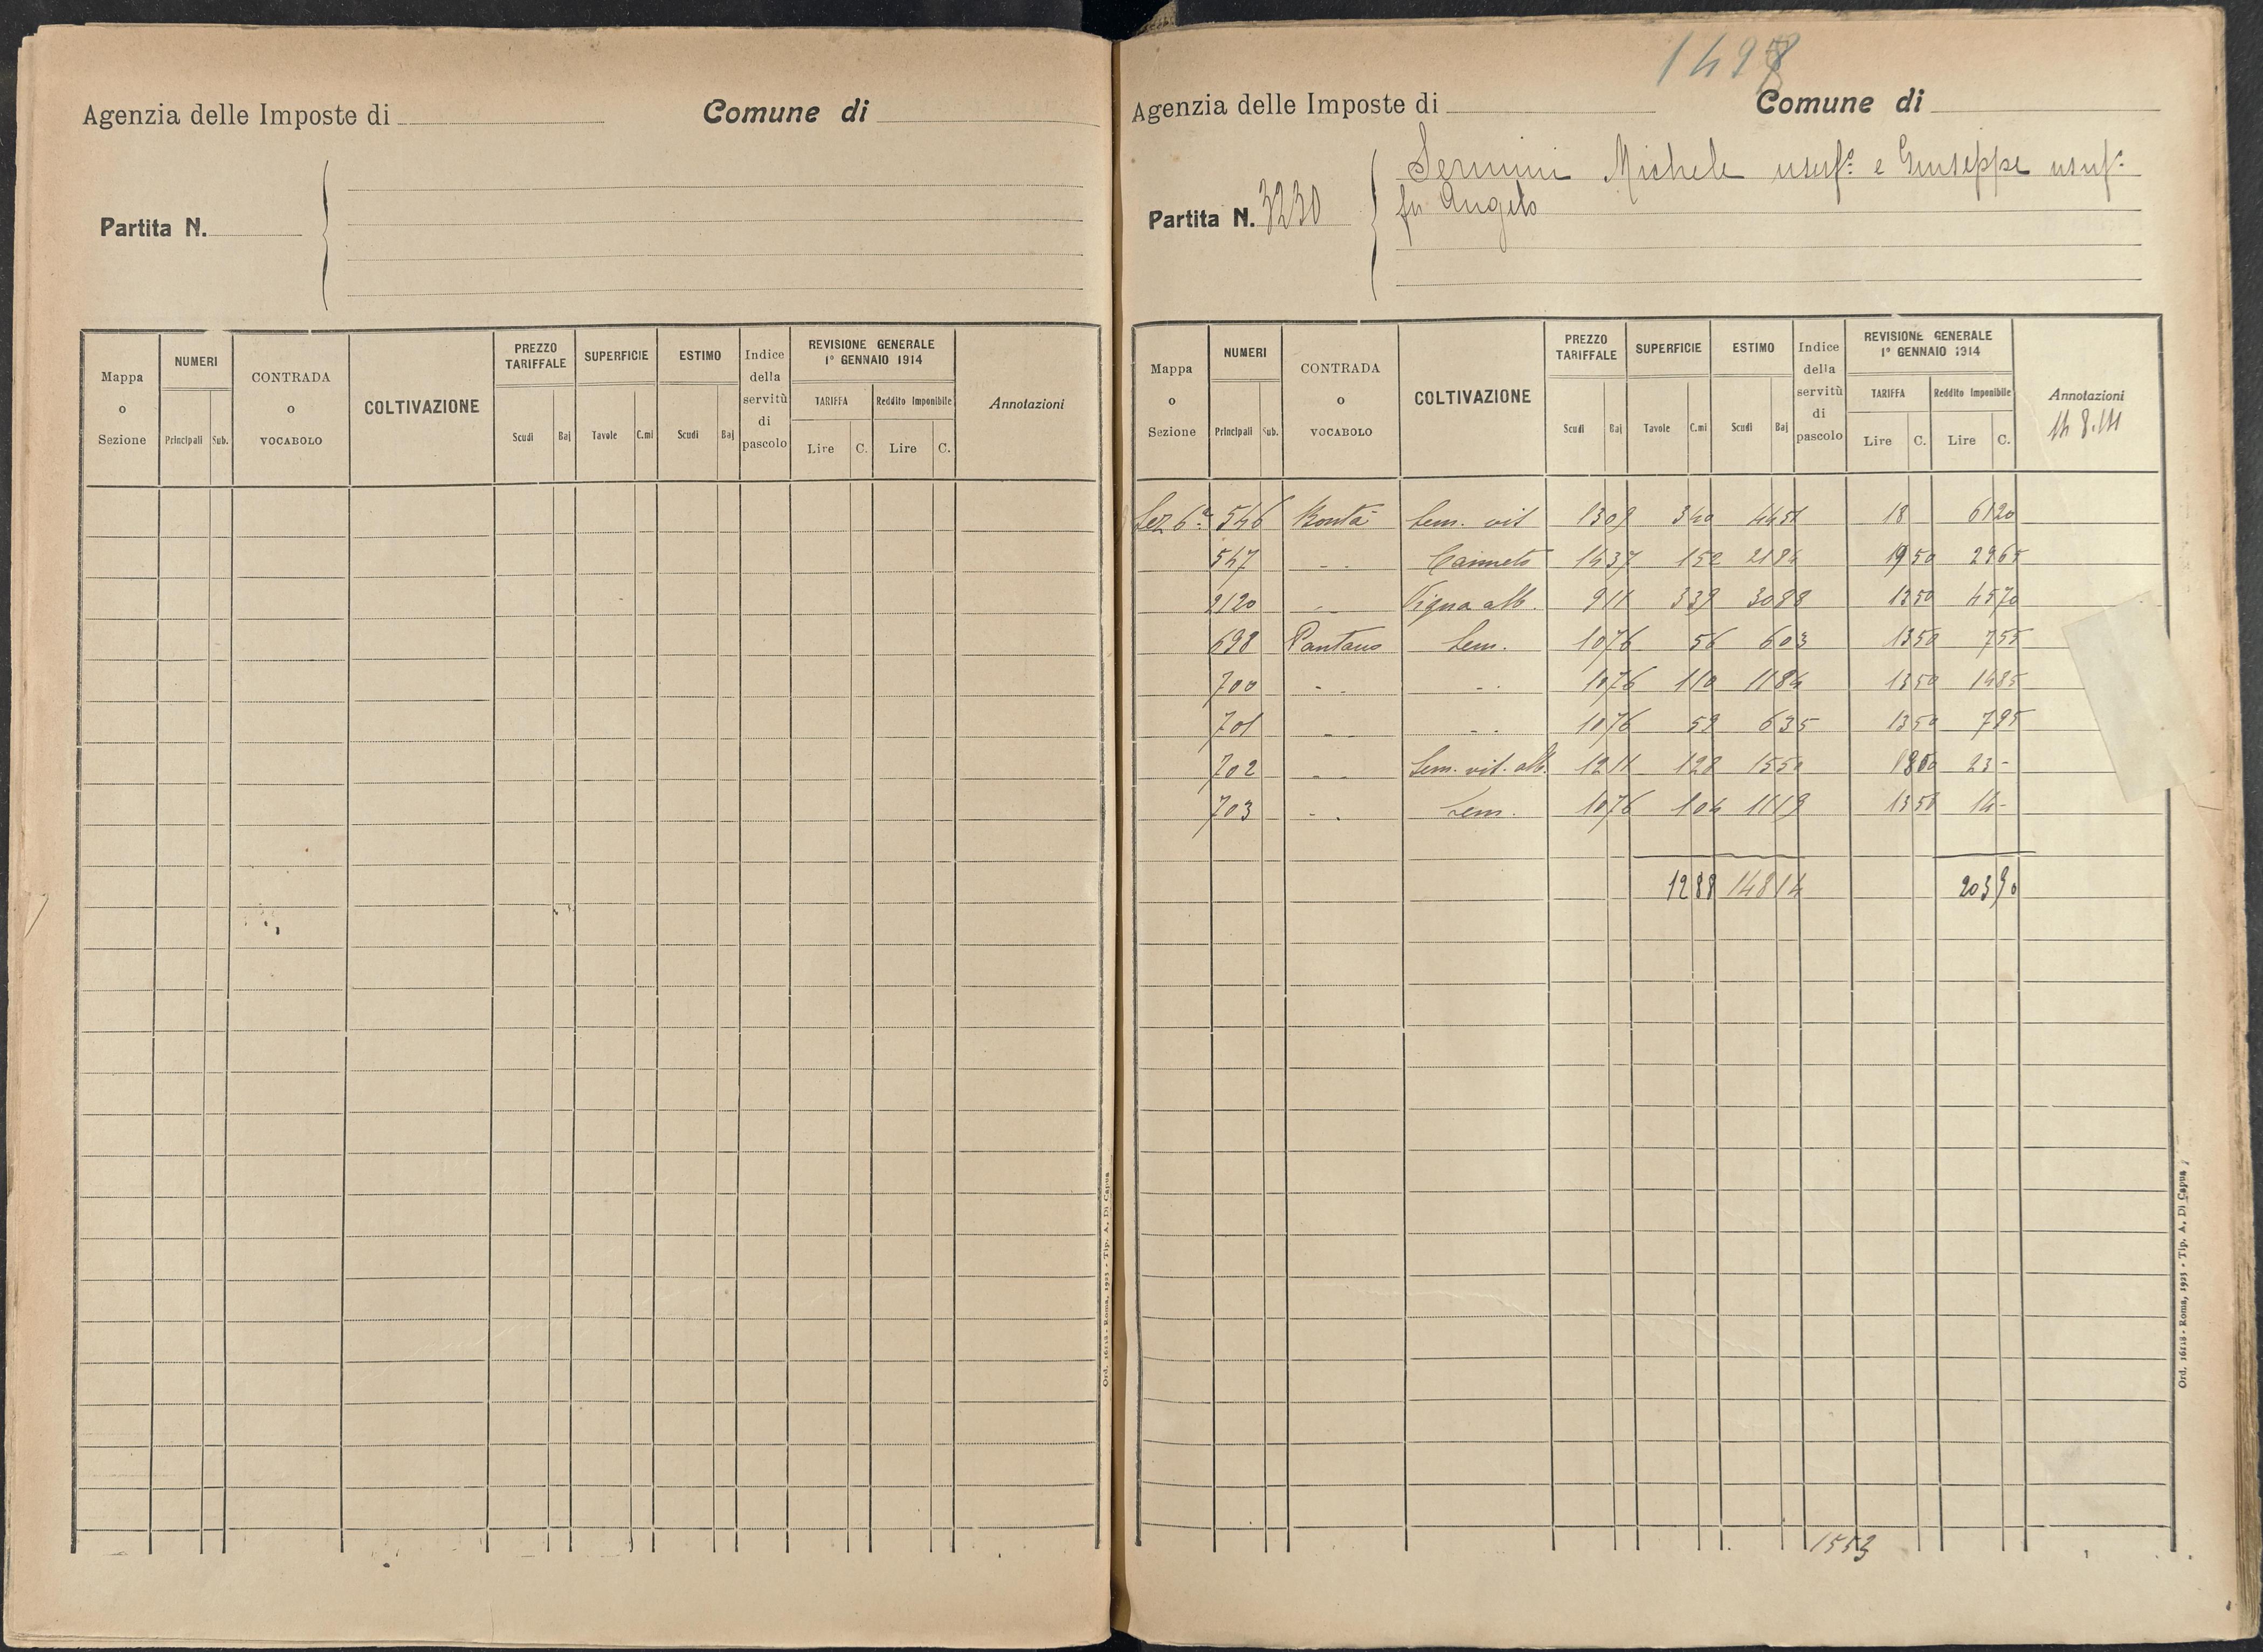 Agenzia delle Imposte di Comune di
Partita N.
Mappa o Sezione NUMERI Principali Sub. CONTRADA o VOCABOLO COLTIVAZIONE PREZZO TARIFFALE Scudi Baj SUPERFICIE Tavole C.mi ESTIMO Scudi Baj Indice della servitù di pascolo REVISIONE GENERALE 1° GENNAIO 1914 TARIFFA Lire C. Reddito Imponibile Lire C. Annotazioni
Ord. 16118 - Roma, 1923 - Tip. A. Di Capua
1498
Agenzia delle Imposte di Comune di
Sermini Michele usuf.º e Giuseppe usuf.º
Partita N. 3230 fu Angelo
Mappa o Sezione NUMERI Principali Sub. CONTRADA o VOCABOLO COLTIVAZIONE PREZZO TARIFFALE Scudi Baj SUPERFICIE Tavole C.mi ESTIMO Scudi Baj Indice della servitù di pascolo REVISIONE GENERALE 1° GENNAIO 1914 TARIFFA Lire C. Reddito Imponibile Lire C. Annotazioni
Sez. 6ª 546 Sem. vit 13 09 3 40 44 51 18 61 20
547 - - Canneto 14 37 1 52 21 84 19 50 29 65
2120 - - Vigna alb. 9 11 3 39 30 88 13 50 45 70
698 Pantano Sem. 10 76 56 6 03 13 50 7 55
700 - - - - 10 76 1 10 11 84 13 50 14 85
701 - - - - 10 76 59 6 35 13 50 7 95
702 - - Sem. vit. alb. 12 11 1 28 15 50 18 00 23 -
703 - - Sem. 10 76 1 04 11 19 13 50 14 -
12 88 148 14 203 90
1553
Ord. 16118 - Roma, 1923 - Tip. A. Di Capua